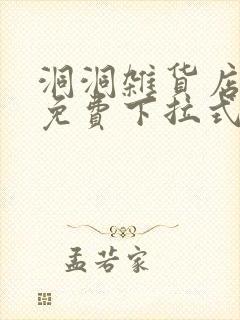 洞洞雜貨店
免費下拉式
孟若家